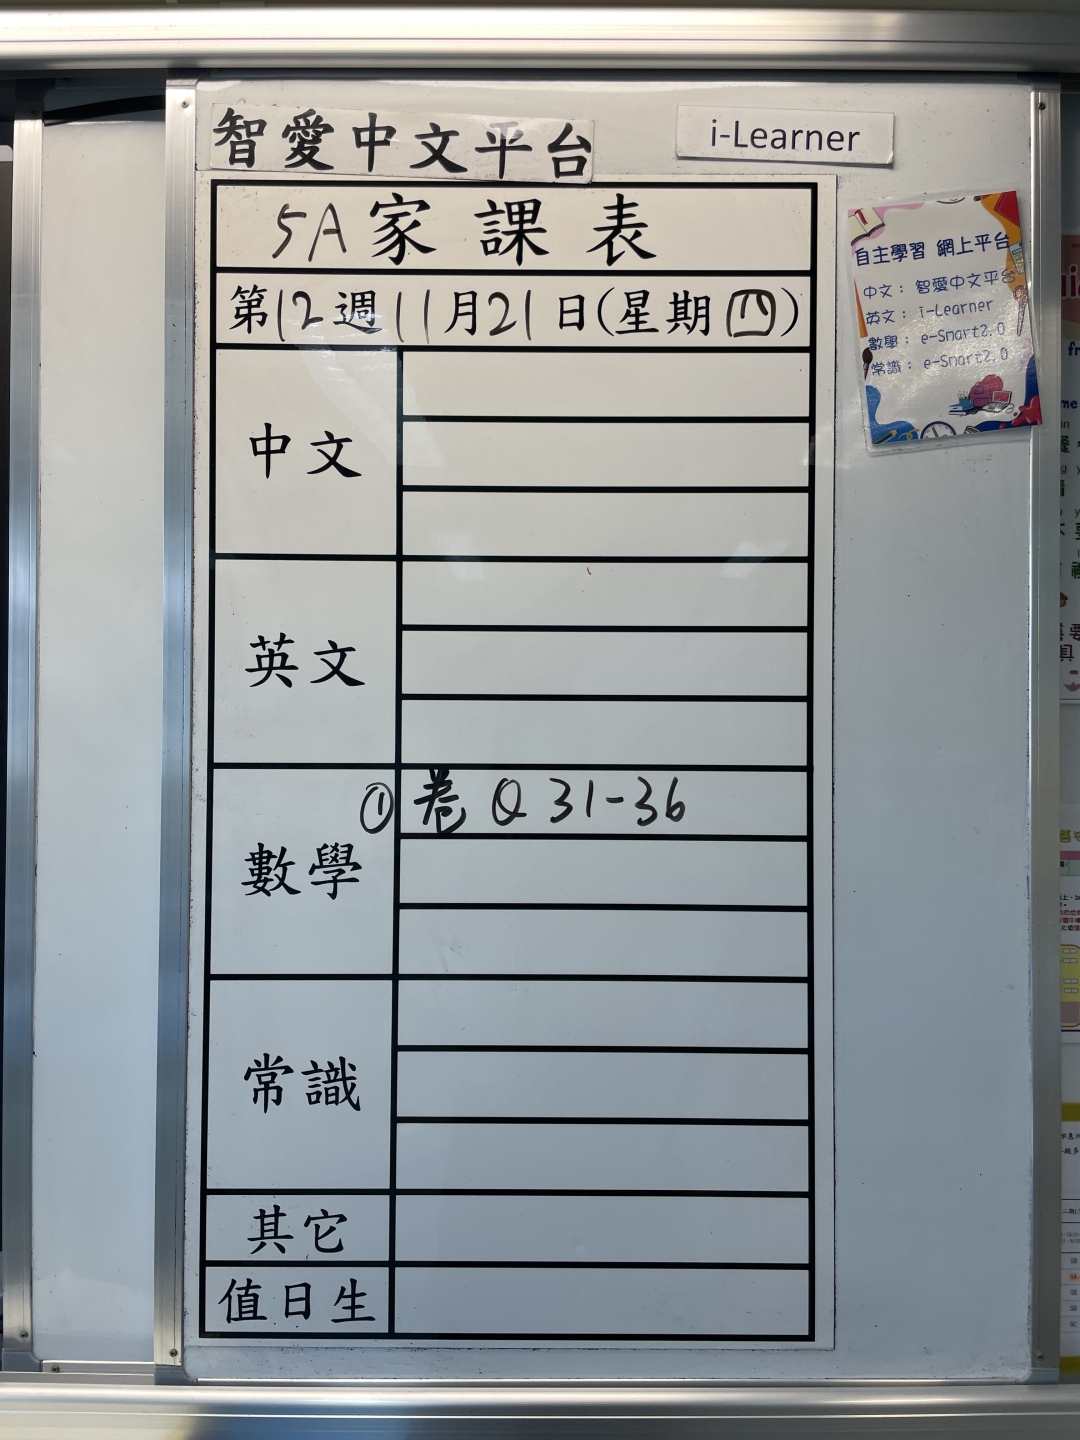 智愛中文平台
i-Learner
5A家課表
第12週11月21日(星期四)
自主學習 網上平台
中文：智愛中文平台
英文：i-Learner
數學：e-Smart2.0
常識：e-Smart2.0
中文
英文
數學
① 卷 Q 31-36
常識
其它
值日生